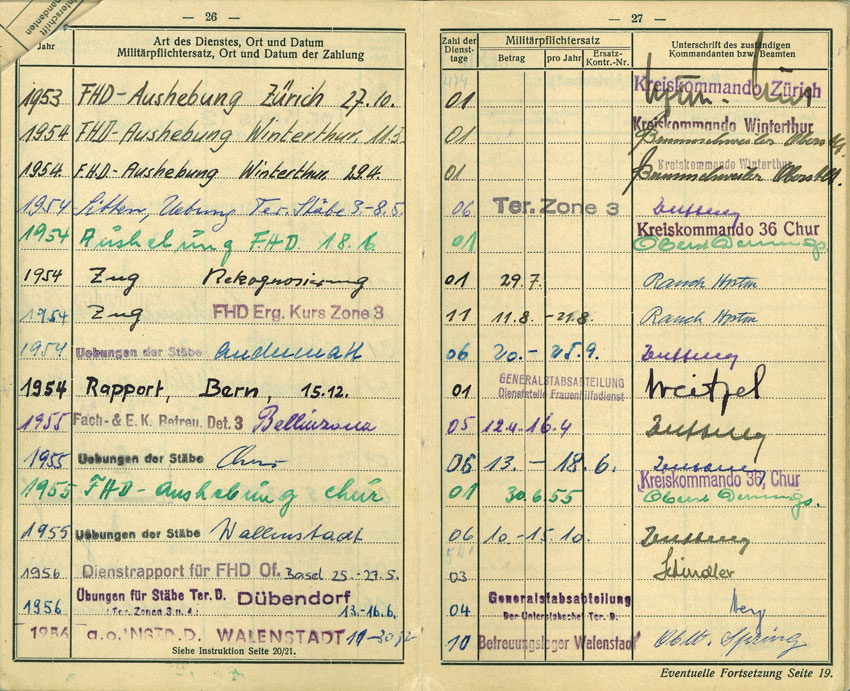 Unterschrift
mandanten
— 26 —
Jahr
Art des Dienstes, Ort und Datum
Militärpflichtersatz, Ort und Datum der Zahlung
1953 FHD-Aushebung Zürich 27.10.
1954 FHD-Aushebung Winterthur, 11.3.
1954. F.H.D.-Aushebung Winterthur, 29.4.
1954 Sitten, Uebung Ter. Stäbe 3.-8.5.
1954 Aushebung FHD. 18.6.
1954 Zug Rekognoszierung
1954 Zug FHD Erg. Kurs Zone 3
1954 Uebungen der Stäbe Andermatt
1954 Rapport, Bern, 15.12.
1955 Fach- & E. K. Betreu. Det. 3 Bellinzona
1955 Uebungen der Stäbe Chur
1955 FHD-Aushebung Chur
1955 Uebungen der Stäbe Wallenstadt
1956 Dienstrapport für FHD Of. Basel 25.-27.5.
1956 Übungen für Stäbe Ter. D. Dübendorf
(Ter. Zonen 3 u. 4) 13.-16.6.
1956 a.o. INSTR. D. WALENSTADT
Siehe Instruktion Seite 20/21.
— 27 —
Zahl der Diensttage
Militärpflichtersatz
Betrag pro Jahr Ersatz-Kontr.-Nr.
Unterschrift des zuständigen
Kommandanten bzw. Beamten
01 Kreiskommando Zürich
01 Kreiskommando Winterthur
Brunnschweiler Oberstlt.
01 Kreiskommando Winterthur
Brunnschweiler Oberstlt.
06 Ter. Zone 3
01 Kreiskommando 36 Chur
Oberst
01 29.7. Rauch Hptm
11 11.8. - 21.8. Rauch Hptm
06 20.- 25.9.
01 GENERALSTABSABTEILUNG
Dienststelle Frauenhilfsdienst Weitzel
05 12.4. 16.4
06 13. - 18.6.
01 30.6.55 Kreiskommando 36, Chur
Oberst
06 10.-15.10.
03 Schindler
04 Generalstabsabteilung
Der Unterstabschef Ter. D.
10 Betreuungslager Walenstadt Oblt. Spring
Eventuelle Fortsetzung Seite 19.